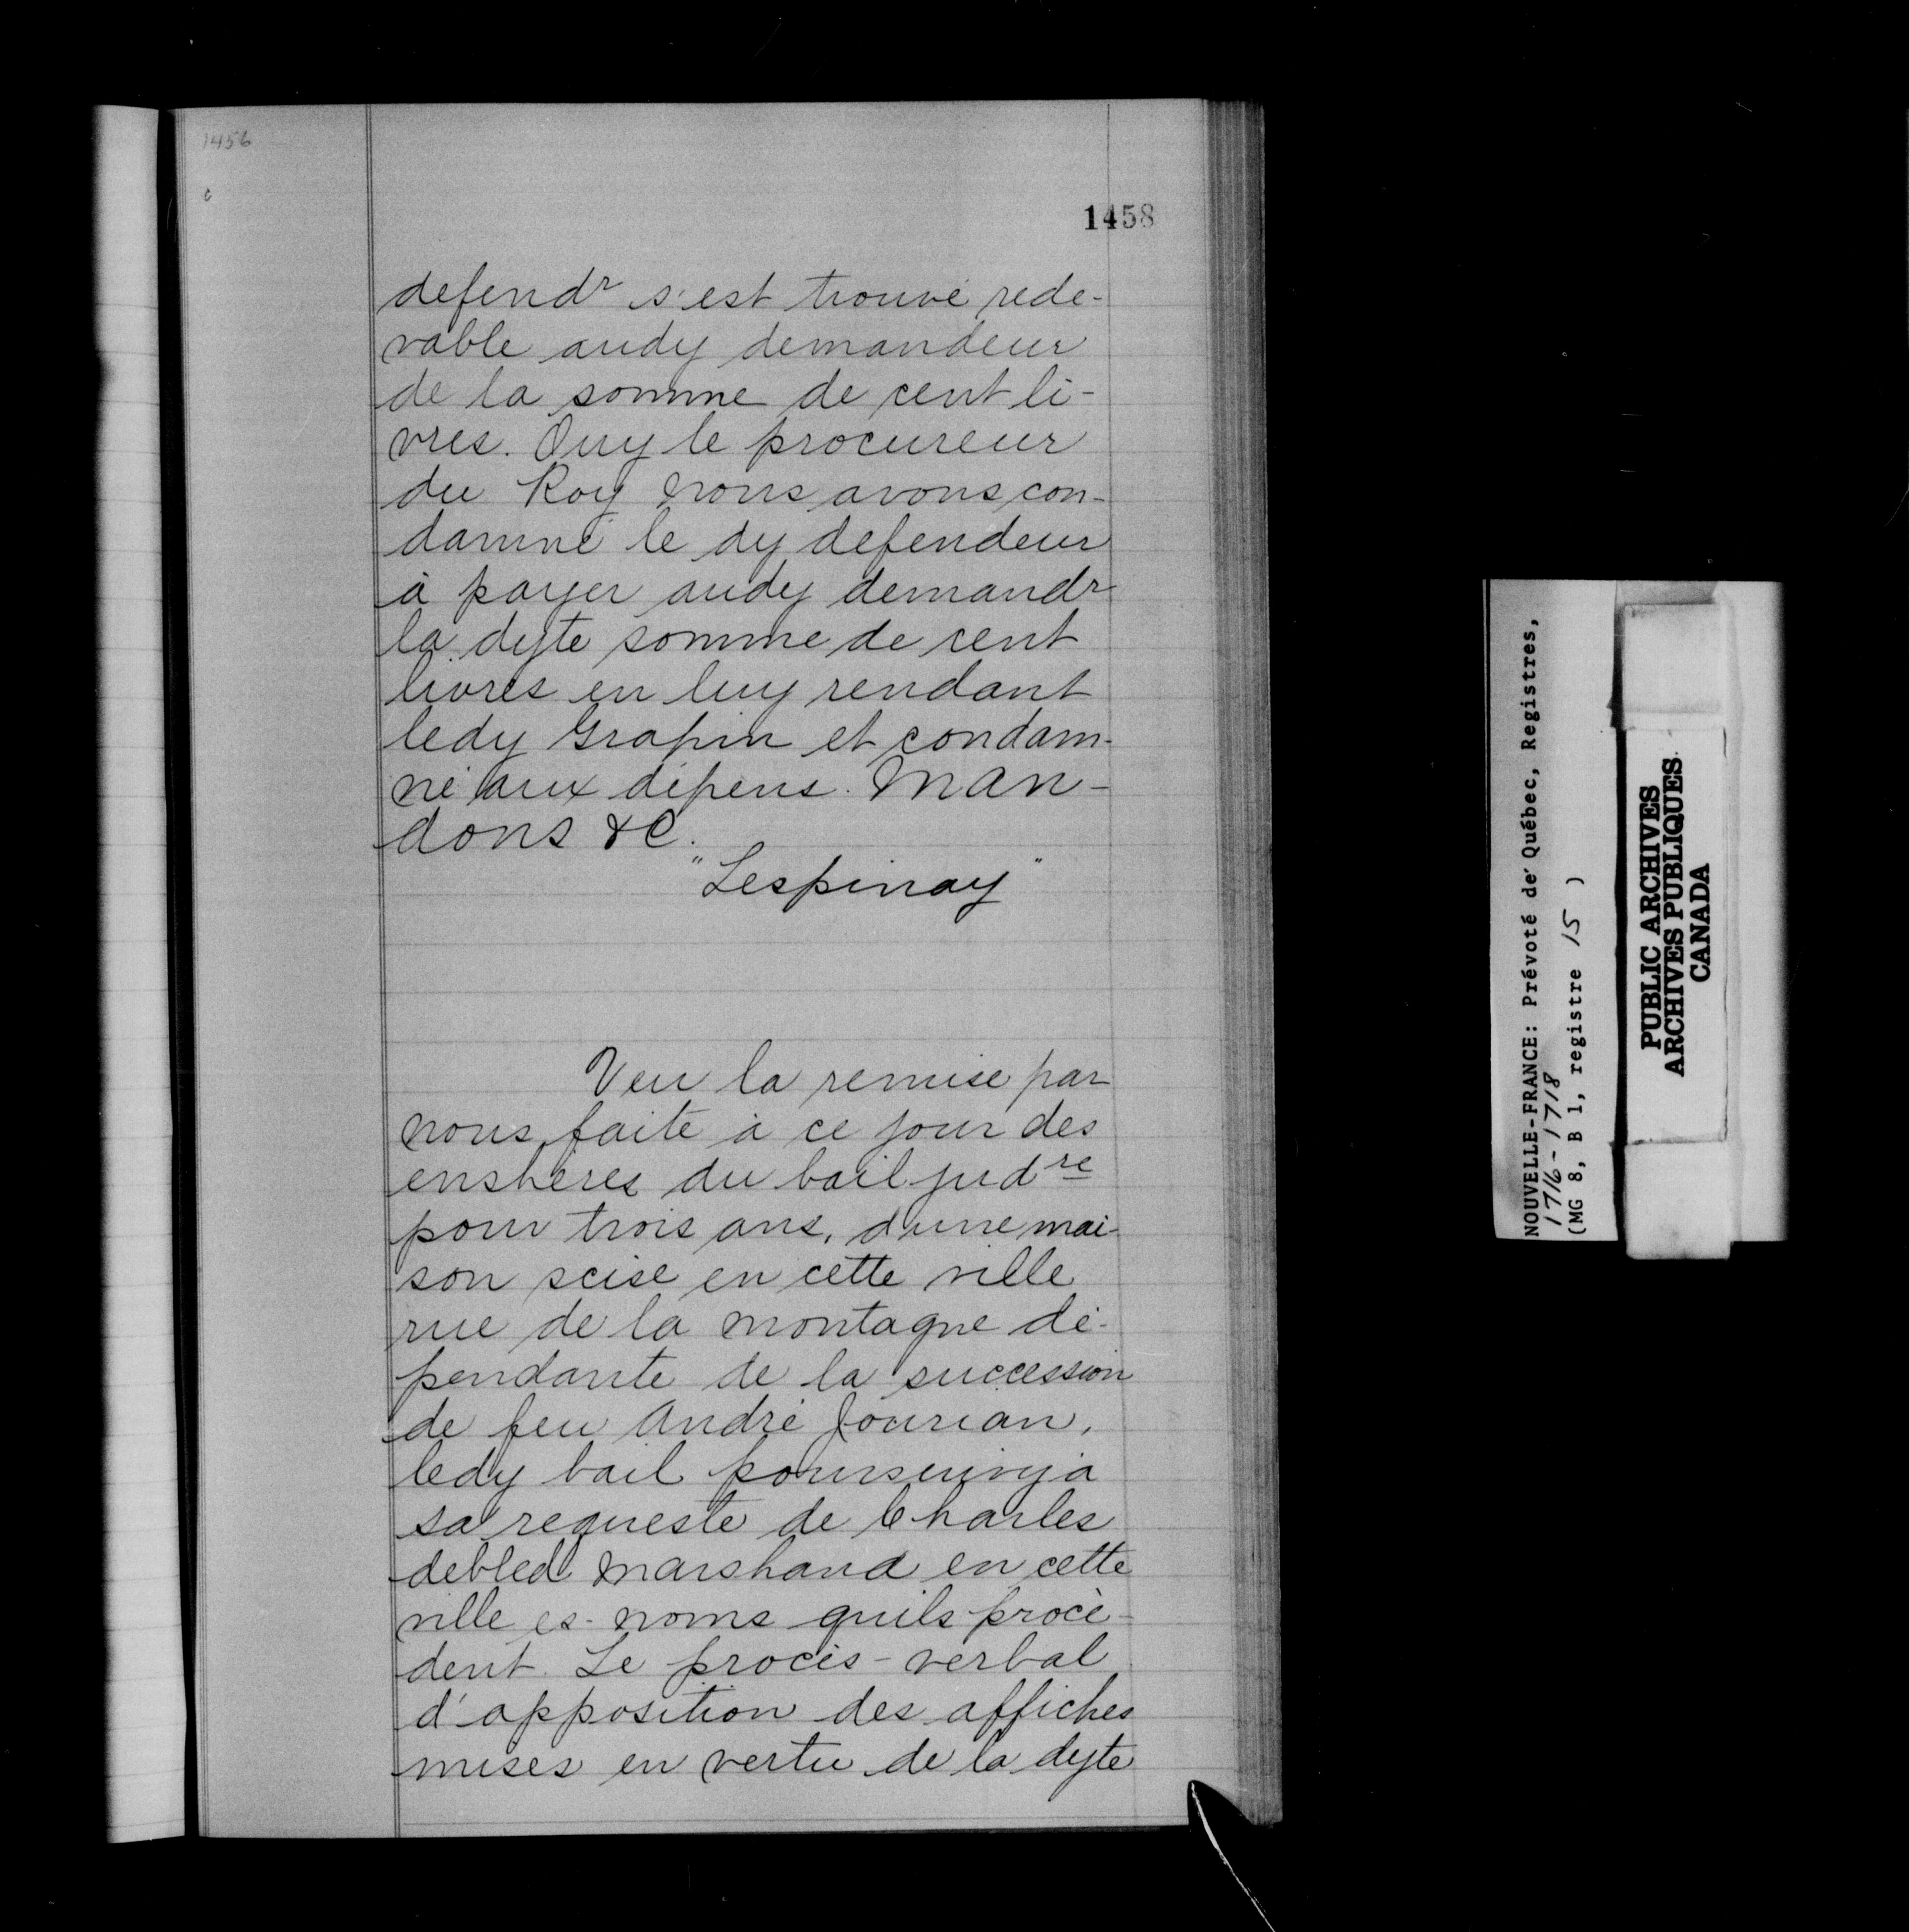 1456
1458
defendr s'est trouvé rede-
vable audy demandeur
de la somme de cent li-
vres. Ouy le procureur
du Roy nous avons con-
damné le dy defendeur
à payer audy demandr
la dyte somme de cent
livres en luy rendant
ledy Grapin et condam-
né aux dépens. Man-
dons &C.
"Lespinay"
Veu la remise par
nous faite à ce jour des
enshères du bail judre
pour trois ans, d'une mai-
son scise en cette ville
rue de la montagne dé-
pendante de la succession
de feu André Jourian,
ledy bail poursuivy à
sa requeste de Charles
debled marshand en cette
ville es-noms qu'ils procè-
dent. Le procès-verbal
d'apposition des affiches
mises en vertu de la dyte
NOUVELLE-FRANCE: Prévoté de Québec, Registres,
1716-1718
(MG 8, B 1, registre 15 )
PUBLIC ARCHIVES
ARCHIVES PUBLIQUES
CANADA